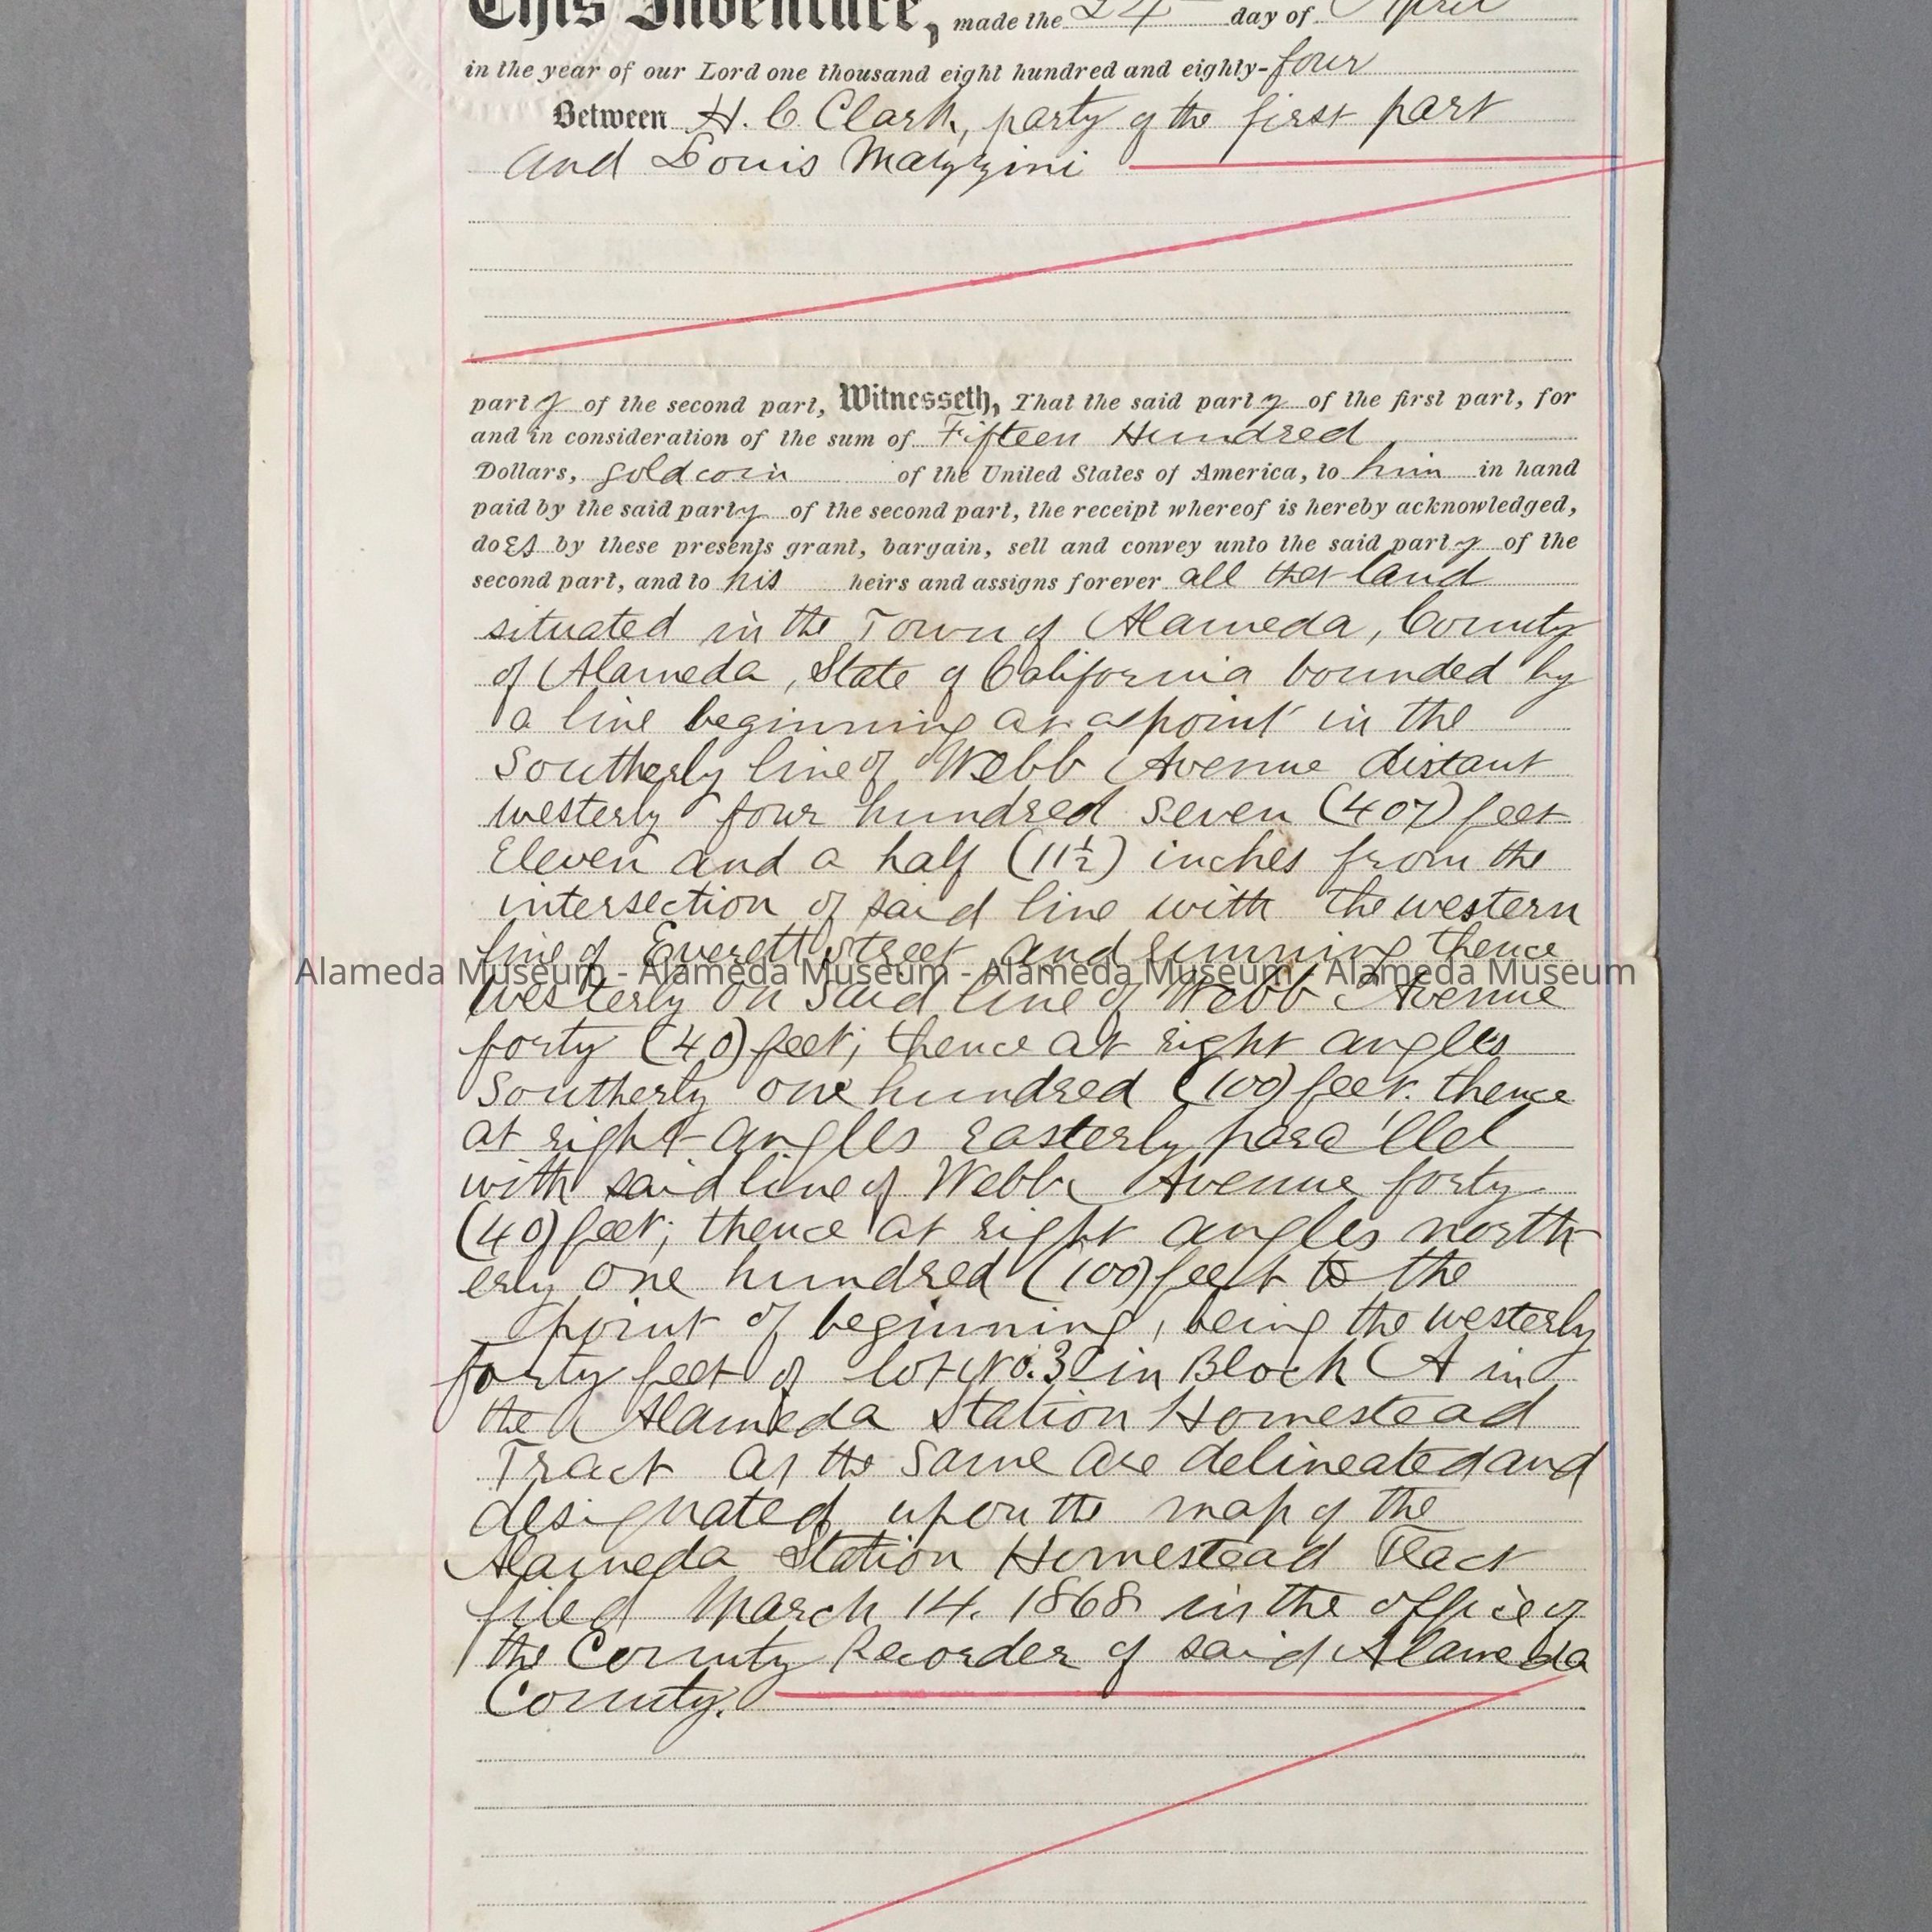 This Indenture, made the 24th day of April
in the year of our Lord one thousand eight hundred and eighty-four
Between H. C. Clark, party of the first part
and Louis Mazzini
party of the second part, Witnesseth, That the said party of the first part, for
and in consideration of the sum of Fifteen Hundred
Dollars, gold coin of the United States of America, to him in hand
paid by the said party of the second part, the receipt whereof is hereby acknowledged,
does by these presents grant, bargain, sell and convey unto the said party of the
second part, and to his heirs and assigns forever all that land
situated in the Town of Alameda, County
of Alameda, State of California bounded by
a line beginning at a point in the
Southerly line of Webb Avenue distant
westerly four hundred seven (407) feet
Eleven and a half (11½) inches from the
intersection of said line with the western
line of Everett Street and running thence
Alameda Museum - Alameda Museum - Alameda Museum - Alameda Museum
westerly on said line of Webb Avenue
forty (40) feet; thence at right angles
Southerly one hundred (100) feet. thence
at right angles easterly para'llel
with said line of Webb Avenue forty
(40) feet; thence at right angles north-
erly one hundred (100) feet to the
point of beginning, being the westerly
forty feet of lot No. 3 in Block A in
the Alameda Station Homestead
Tract as the same are delineated and
designated upon the map of the
Alameda Station Homestead Tract
filed March 14. 1868 in the office of
the County Recorder of said Alameda
County.